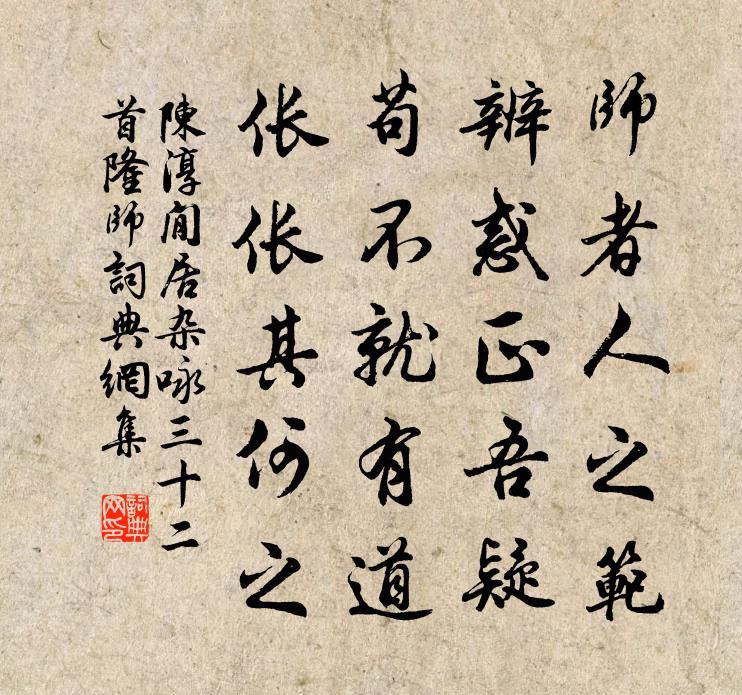 師者人之範
辨惑正吾疑
苟不就有道
伥伥其何之
陳淳閒居杂咏三十二
首隆師詞典網集
詞典
网印